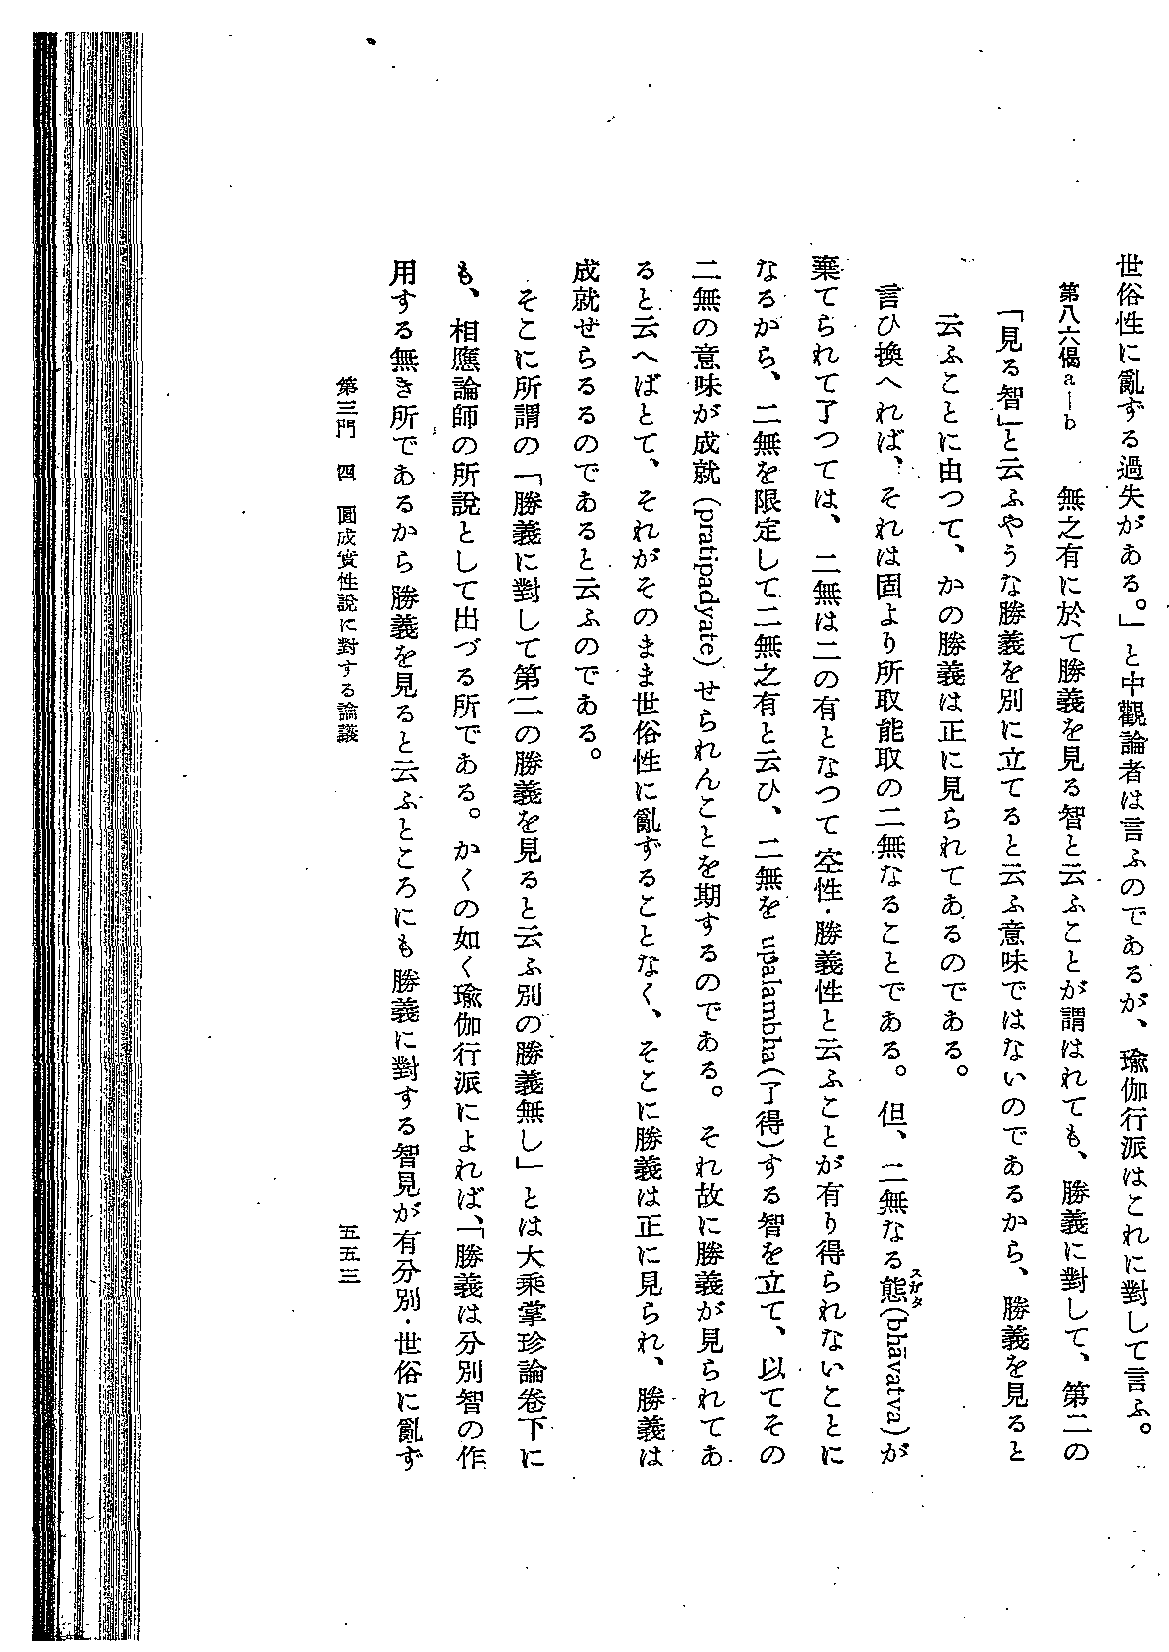 世俗性に亂ずる過失がある。」と中觀論者は言ふのであるが、瑜伽行派はこれに對して言ふ。
第八六偈a—b　無之有に於て勝義を見る智と云ふことが謂はれても、勝義に對して、第二の
「見る智」と云ふやうな勝義を別に立てると云ふ意味ではないのであるから、勝義を見ると
云ふことに由つて、かの勝義は正に見られてあるのである。
言ひ換へれば、それは固より所取能取の二無なることである。但、二無なる態スガタ(bhāvatva)が
棄てられて了つては、二無は二の有となつて空性・勝義性と云ふことが有り得られないことに
なるから、二無を限定して二無之有と云ひ、二無を upalambha(了得)する智を立て、以てその
二無の意味が成就(pratipadyate)せられんことを期するのである。それ故に勝義が見られてあ
ると云へばとて、それがそのまま世俗性に亂ずることなく、そこに勝義は正に見られ、勝義は
成就せらるるのであると云ふのである。
そこに所謂の「勝義に對して第二の勝義を見ると云ふ別の勝義無し」とは大乘掌珍論卷下に
も、相應論師の所說として出づる所である。かくの如く瑜伽行派によれば、「勝義は分別智の作
用する無き所であるから勝義を見ると云ふところにも勝義に對する智見が有分別・世俗に亂ず
第三門　四　圓成實性說に對する論議
五五三